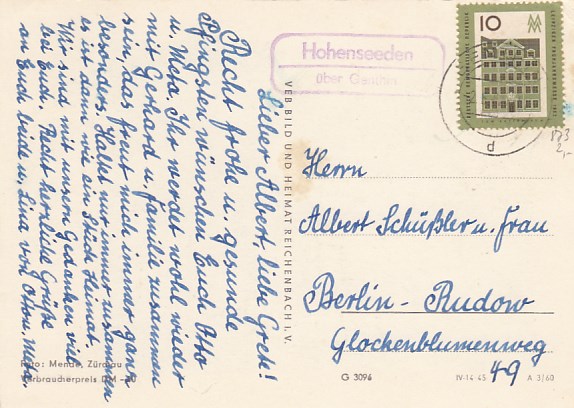 Lieber Albert, liebe Grete!
Recht frohe u. gesunde
Pfingsten wünschen Euch Otto
u. Meta. Ihr werdet wohl wieder
mit Gerhard u. Familie zusammen
sein, das freut mich immer ganz
besonders. Haltet nur immer zusammen
es ist dann wie ein Stück Heimat.
Wir sind mit unsern Gedanken viel
bei Euch. Recht herzliche Grüße
an Euch beide u. Lina von Otto u. Meta.
Foto: Mende, Zürchau
Verbraucherpreis DM -,20
VEB BILD UND HEIMAT REICHENBACH I. V.
Hohenseeden
über Genthin
10
MM
d
173
2,-
Herrn
Albert Schüßler u. Frau
Berlin-Rudow
Glockenblumenweg
49
G 3096
IV-14-45
A 3/60